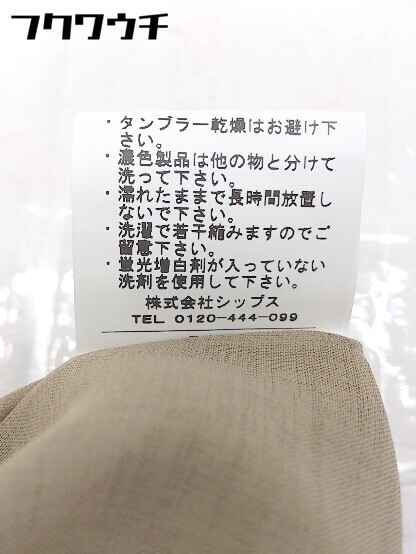 フクワウチ
・タンブラー乾燥はお避け下
さい。
・濃色製品は他の物と分けて
洗って下さい。
・濡れたままで長時間放置し
ないで下さい。
・洗濯で若干縮みますのでご
留意下さい。
・蛍光増白剤が入っていない
洗剤を使用して下さい。
株式会社シップス
TEL 0120-444-099